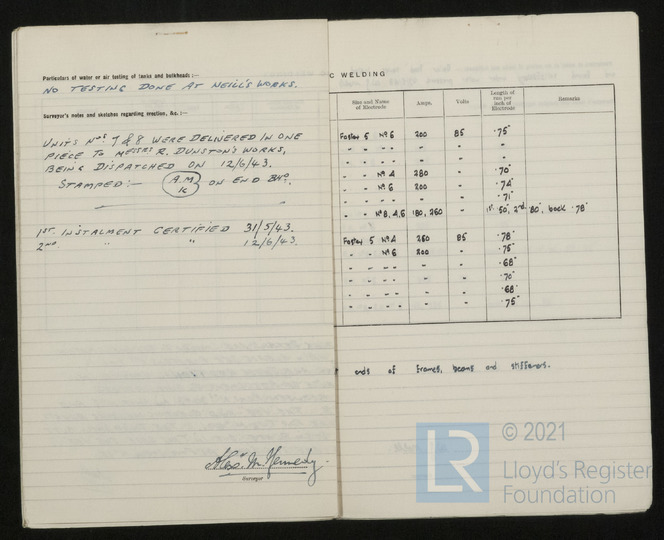 Particulars of water or air testing of tanks and bulkheads:—
NO TESTING DONE AT NEILL'S WORKS.
Surveyor's notes and sketches regarding erection, &c.:—
UNITS Nos 7 & 8 WERE DELIVERED IN ONE
PIECE TO MESSRS R. DUNSTON'S WORKS,
BEING DISPATCHED ON 12/6/43.
STAMPED:— A.M. K ON END BHD.
1ST. INSTALMENT CERTIFIED 31/5/43.
2ND. " " 12/6/43.
Alex. M. Kennedy.
Surveyor
C WELDING
Size and Name of Electrode Amps. Volts Length of run per inch of Electrode Remarks
Foster 5 No 6 200 85 .75"
" " " - - -
" " " - - -
- - No 4 280 - .70"
- - No 6 200 - .74"
- - - - - .71"
- - No 8, 4, 6 180, 260 - 1st .50", 2nd .80", back .78"
Foster 5 No 4 260 85 .78"
- - No 6 200 - .75"
- - - - - .68"
- - - - - .70"
- - - - - .68"
- - - - - .75"
ends of frames, beams and stiffeners.
LR
© 2021
Lloyd's Register
Foundation